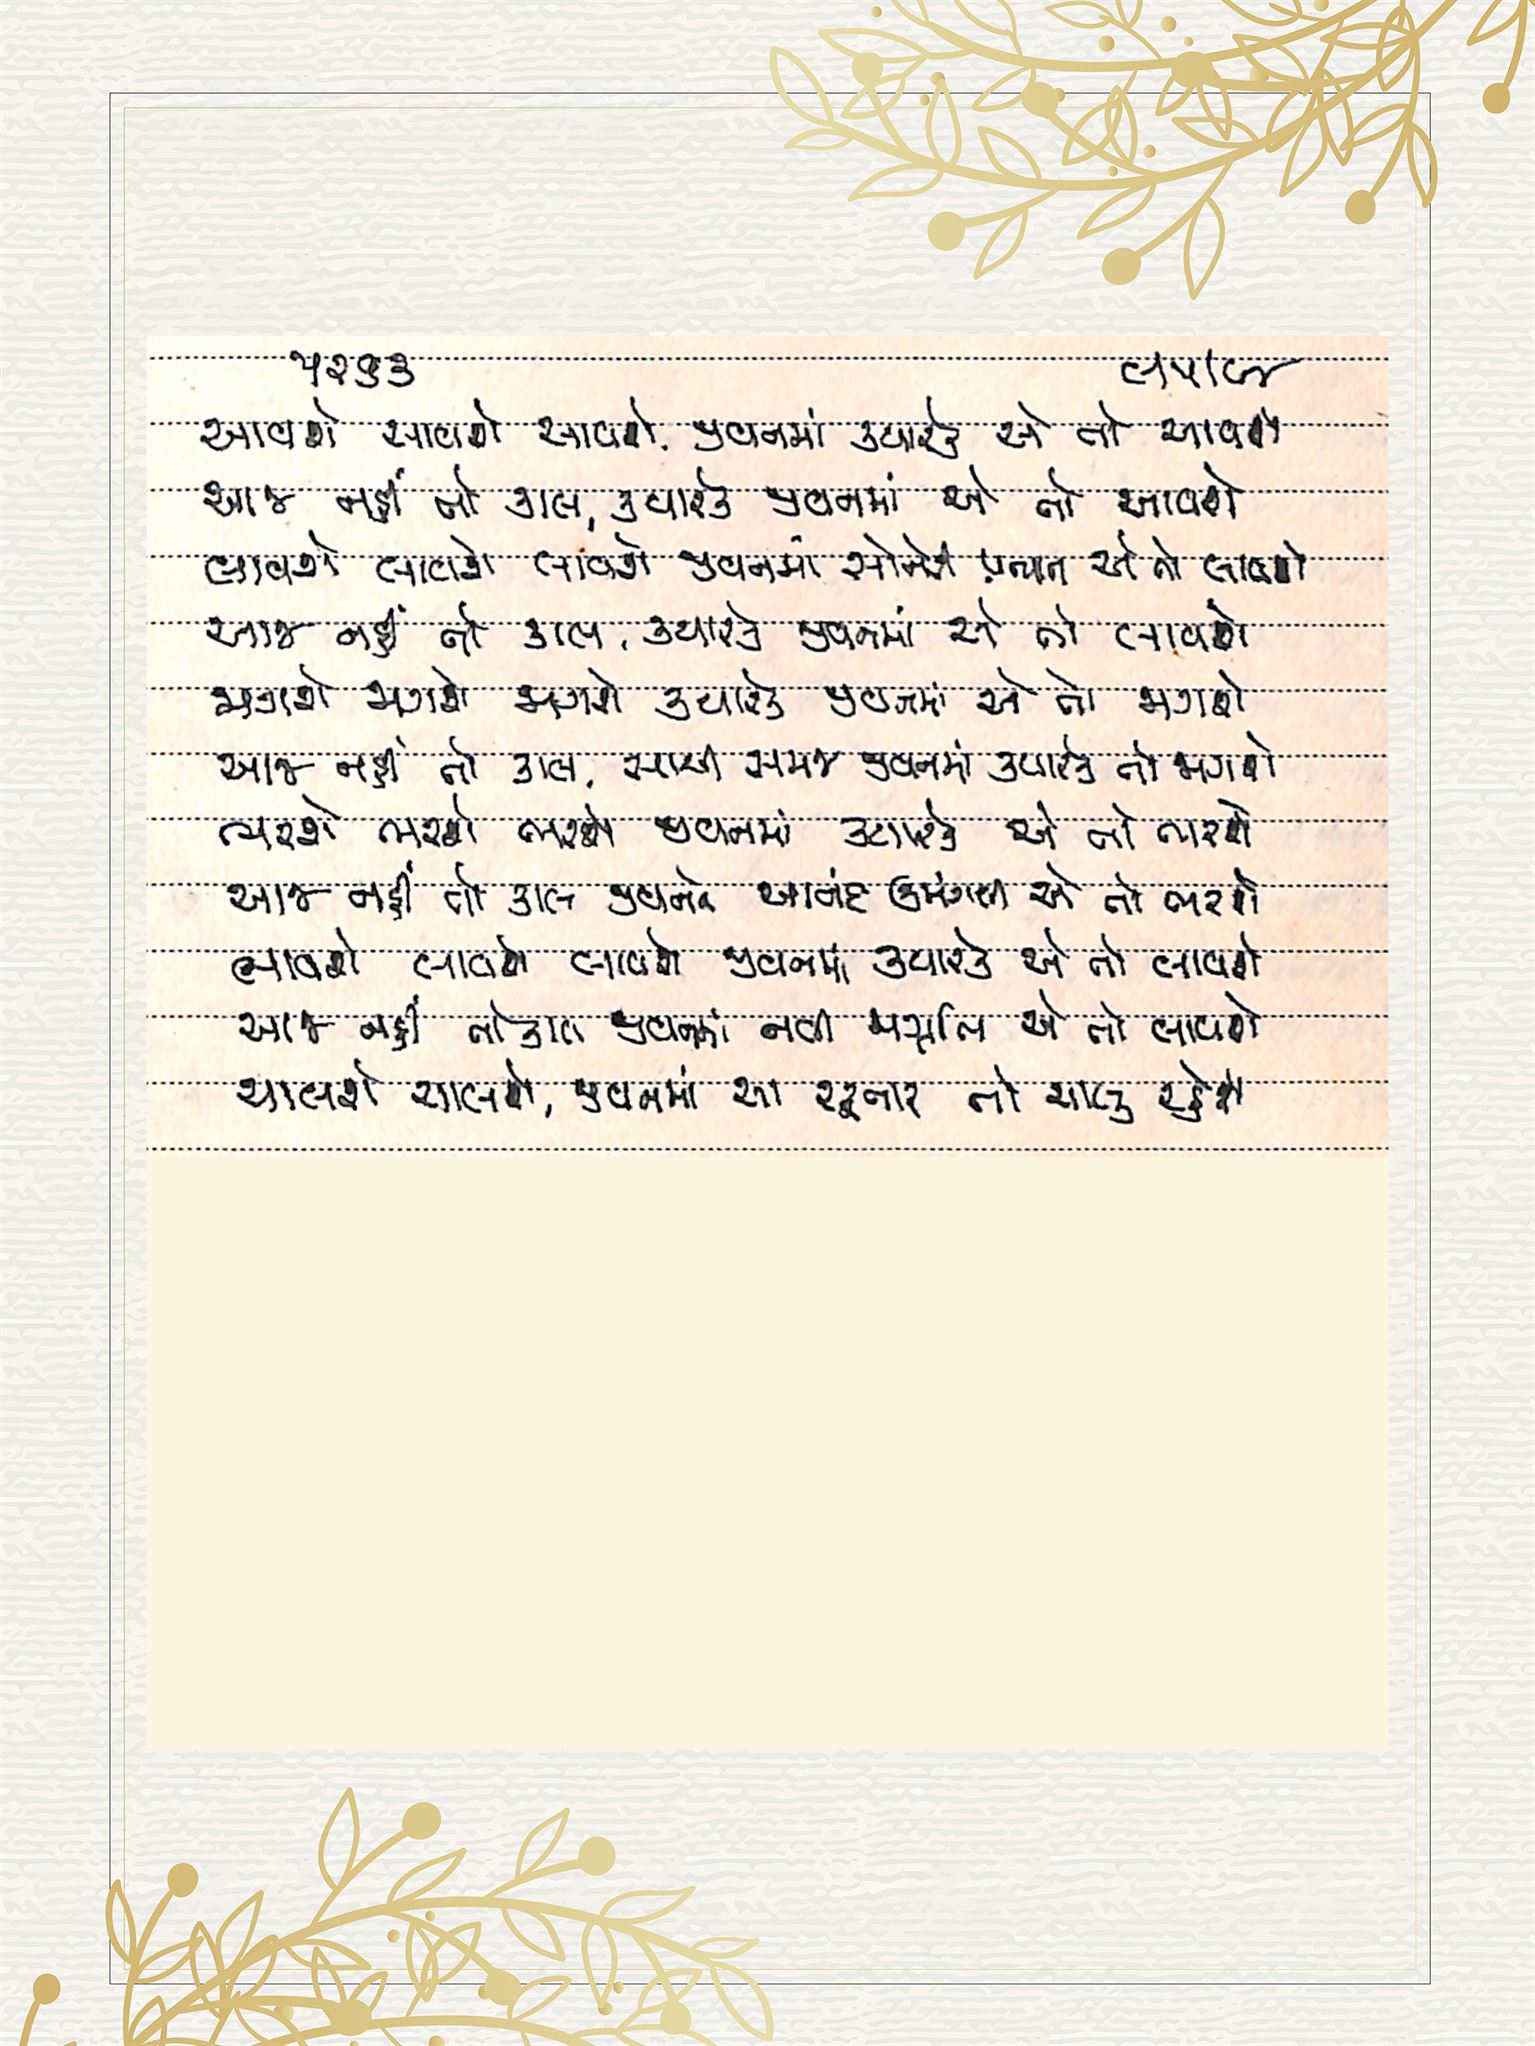 ૫૨૬૩
આવશે આવશે આવશે. જીવનમાં ક્યારેક એ તો આવશે
આજ નહીં તો કાલ, ક્યારેક જીવનમાં એ તો આવશે
લાવશે લાવશે લાવશે જીવનમાં સોનેરી પ્રભાત એ તો લાવશે
આજ નહીં તો કાલ, ક્યારેક જીવનમાં એ તો લાવશે
જાગશે જાગશે જાગશે ક્યારેક જીવનમાં એ તો જાગશે
આજ નહીં તો કાલ, સાચી સમજ જીવનમાં ક્યારેક તો જાગશે
ભરશે ભરશે ભરશે જીવનમાં ક્યારેક એ તો ભરશે
આજ નહીં તો કાલ જીવનને આનંદ ઉમંગથી એ તો ભરશે
લાવશે લાવશે લાવશે જીવનમાં ક્યારેક એ તો લાવશે
આજ નહીં તો કાલ જીવનમાં નવી જાગૃતિ એ તો લાવશે
ચાલશે ચાલશે, જીવનમાં આ રફ્તાર તો ચાલુ રહેશે